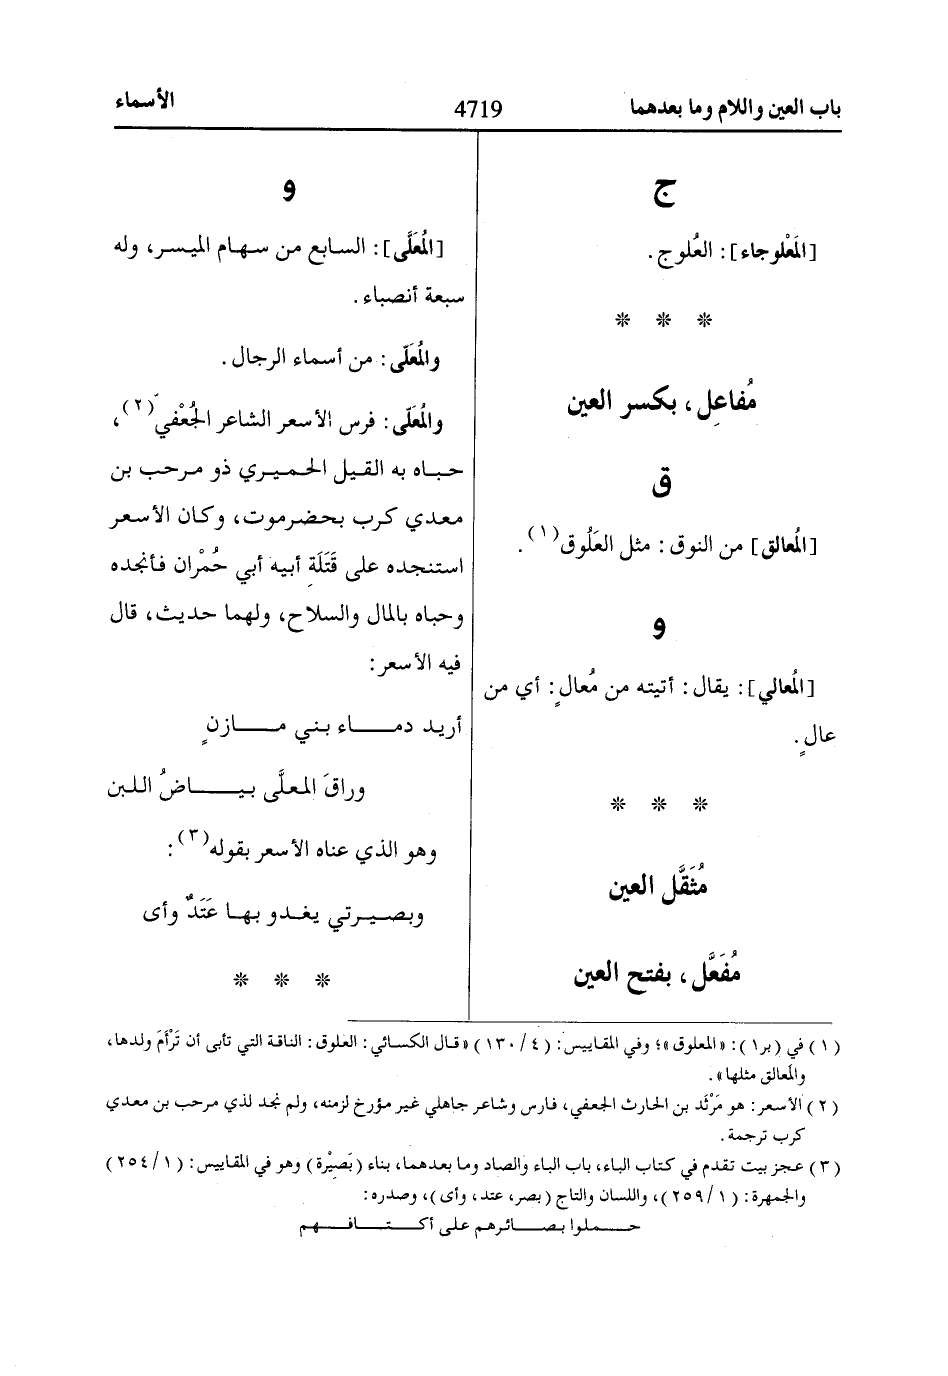 باب العين واللام وما بعدهما 4719 الأسماء
ج
[المَعْلوجاء]: العُلوج.
* * *
مُفاعِل، بكسر العين
ق
[المُعالق] من النوق: مثل العَلُوق(١).
و
[المُعالي]: يقال: أتيته من مُعالٍ: أي من
عالٍ.
* * *
مُثَقَّل العين
مُفَعَّل، بفتح العين
و
[المُعَلَّى]: السابع من سهام الميسر، وله
سبعة أنصباء.
والمُعَلّى: من أسماء الرجال.
والمُعَلّى: فرس الأسعر الشاعر الجُعْفيّ(٢)،
حباه به القيل الحميري ذو مرحب بن
معدي كرب بحضرموت، وكان الأسعر
استنجده على قَتَلَةِ أبيه أبي حُمْران فأنجده
وحباه بالمال والسلاح، ولهما حديث، قال
فيه الأسعر:
أريد دمــاء بني مــازنٍ
وراقَ المعلَّى بيــاضُ اللبن
وهو الذي عناه الأسعر بقوله(٣):
وبصيرتي يغدو بها عَتَدٌ وأى
* * *
(١) في (بر١): «المعلوق»؛ وفي المقاييس: (٤/ ١٣٠) «قال الكسائي: العلوق: الناقة التي تأبى أن تَرْأَمَ ولدها،
والمَعالق مثلها».
(٢) الأسعر: هو مَرْثَد بن الحارث الجعفي، فارس وشاعر جاهلي غير مؤرخ لزمنه، ولم نجد لذي مرحب بن معدي
كرب ترجمة.
(٣) عجز بيت تقدم في كتاب الباء، باب الباء والصاد وما بعدهما، بناء (بَصِيْرة) وهو في المقاييس: (١/ ٢٥٤)
والجمهرة: (١/ ٢٥٩)، واللسان والتاج (بصر، عتد، وأى)، وصدره:
حــملوا بصــائرهم على أكــتــافــهم